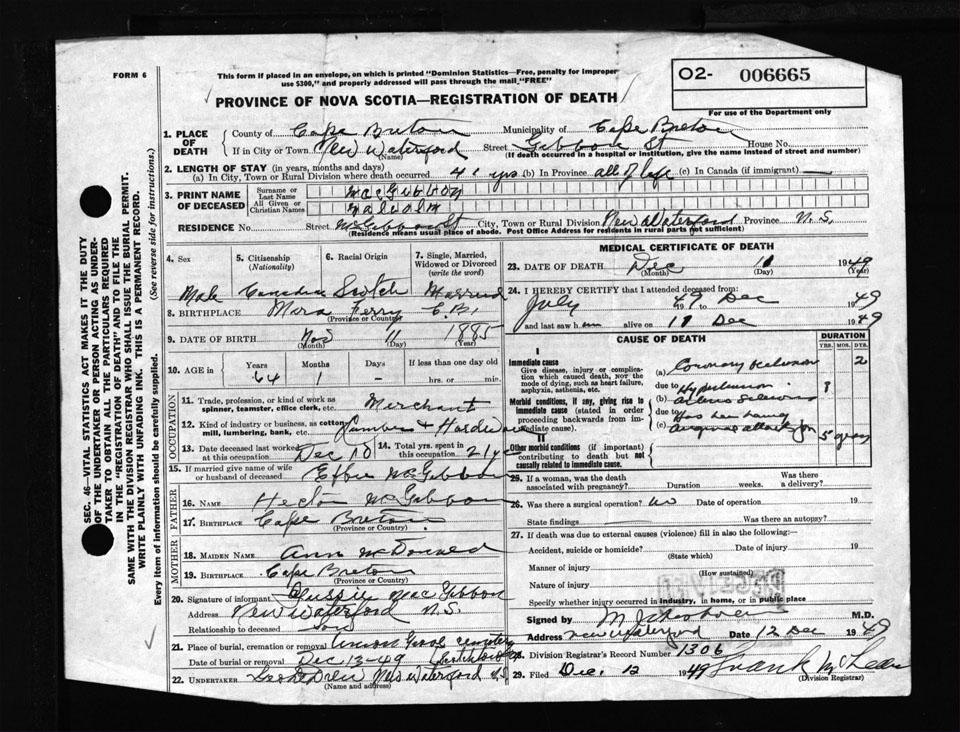 FORM 6
This form if placed in an envelope, on which is printed "Dominion Statistics—Free, penalty for improper
use $300," and properly addressed will pass through the mail, "FREE"
O2- 006665
For use of the Department only
PROVINCE OF NOVA SCOTIA—REGISTRATION OF DEATH
1. PLACE OF DEATH County of Cape Breton Municipality of Cape Breton
If in City or Town New Waterford (Name) Street Gibbon St House No.
(If death occurred in a hospital or institution, give the name instead of street and number)
2. LENGTH OF STAY (in years, months and days)
(a) In City, Town or Rural Division where death occurred yrs (b) In Province all of life (c) In Canada (if immigrant) —
3. PRINT NAME OF DECEASED Surname or Last Name MacGibbon
All Given or Christian Names Malcolm
RESIDENCE No. Street McGibbon St City, Town or Rural Division New Waterford Province N.S.
(Residence means usual place of abode. Post Office Address for residents in rural parts not sufficient)
4. Sex Male
5. Citizenship (Nationality) Canadian
6. Racial Origin Scotch
7. Single, Married, Widowed or Divorced (write the word) Married
8. BIRTHPLACE Ferry C.B. (Province or Country)
9. DATE OF BIRTH Nov (Month) 11 (Day) 1885 (Year)
10. AGE in Years 64 Months 1 Days - If less than one day old hrs. or min.
OCCUPATION
11. Trade, profession, or kind of work as spinner, teamster, office clerk, etc. Merchant
12. Kind of industry or business, as cotton mill, lumbering, bank, etc. Lumber & Hardware
13. Date deceased last worked at this occupation Dec 10
14. Total yrs. spent in this occupation 21 yrs
15. If married give name of wife or husband of deceased Effie McGibbon
FATHER
16. Name Hector McGibbon
17. Birthplace Cape Breton (Province or Country)
MOTHER
18. Maiden Name Ann McDonald
19. Birthplace Cape Breton (Province or Country)
20. Signature of informant MacGibbon
Address New Waterford N.S.
Relationship to deceased Son
21. Place of burial, cremation or removal Cemetery
Date of burial or removal Dec 13-49
22. UNDERTAKER New Waterford N.S. (Name and address)
MEDICAL CERTIFICATE OF DEATH
23. DATE OF DEATH Dec (Month) 11 (Day) 1949 (Year)
24. I HEREBY CERTIFY that I attended deceased from
July 1949 to Dec 1949
and last saw him alive on 11 Dec 1949
CAUSE OF DEATH
DURATION
YRS. MOS. DYS.
I
Immediate cause
Give disease, injury or complication which caused death, not the mode of dying, such as heart failure, asphyxia, asthenia, etc.
(a) Coronary occlusion 2
due to
Morbid conditions, if any, giving rise to immediate cause (stated in order proceeding backwards from immediate cause)
(b) Hypertension
due to
(c)
II
Other morbid conditions (if important) contributing to death but not causally related to immediate cause
25. If a woman, was the death associated with pregnancy? Duration weeks. Was there a delivery?
26. Was there a surgical operation? no Date of operation 19
State findings Was there an autopsy?
27. If death was due to external causes (violence) fill in also the following:
Accident, suicide or homicide? (State which) Date of injury 19
Manner of injury (How sustained)
Nature of injury
Specify whether injury occurred in industry, in home, or in public place
RECEIVED
Signed by M.D.
Address New Waterford Date 12 Dec 1949
28. Division Registrar's Record Number 1306
29. Filed Dec. 12 1949 Frank McLean (Division Registrar)
SEC. 46—VITAL STATISTICS ACT MAKES IT THE DUTY
OF THE UNDERTAKER OR PERSON ACTING AS UNDER-
TAKER TO OBTAIN ALL THE PARTICULARS REQUIRED
IN THE "REGISTRATION OF DEATH" AND TO FILE THE
SAME WITH THE DIVISION REGISTRAR WHO SHALL ISSUE THE BURIAL PERMIT.
WRITE PLAINLY WITH UNFADING INK. THIS IS A PERMANENT RECORD.
Every item of information should be carefully supplied. (See reverse side for instructions.)